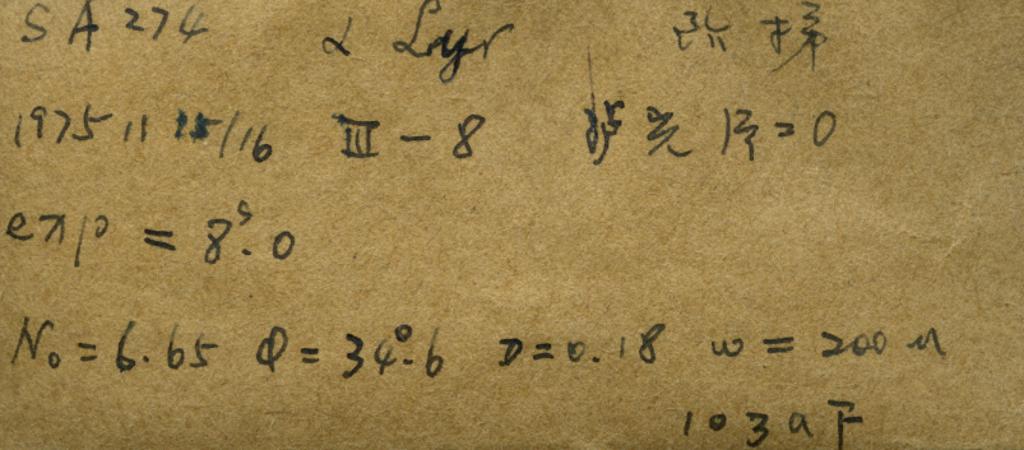 SA 274 α Lyr 阶梯
1975 11 15/16 III-8 滤光片=0
exp = 8ˢ.0
N₀=6.65 Φ=34°.6 D=0.18 w=200 μ
103aF